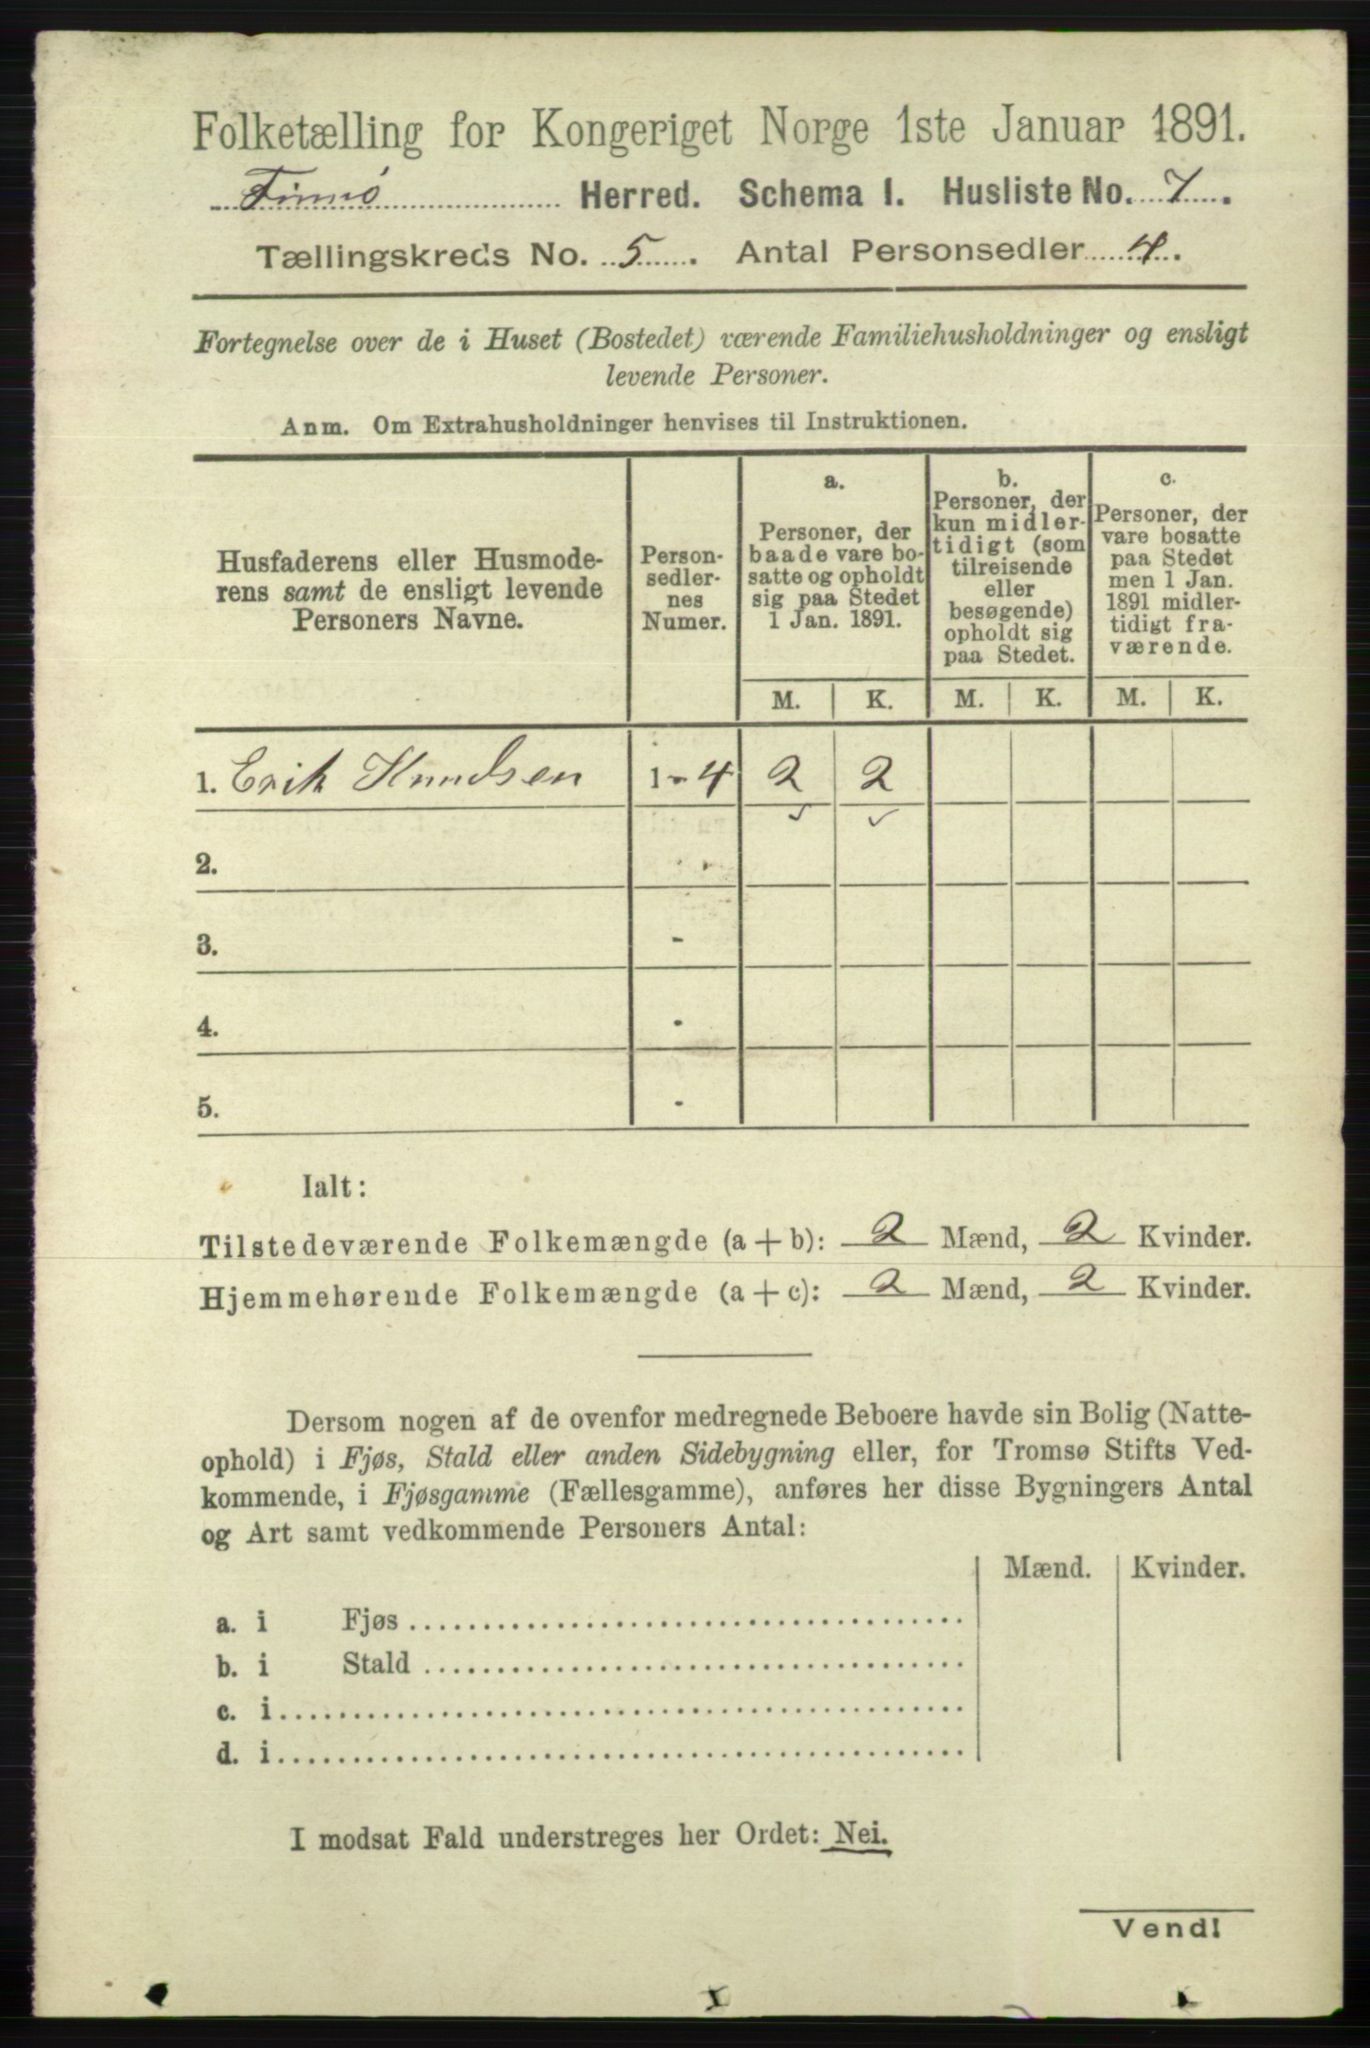 Folketælling for Kongeriget Norge 1ste Januar 1891.
Finnö Herred. Schema 1. Husliste No. 7.
Tællingskreds No. 5. Antal Personsedler 4.
Fortegnelse over de i Huset (Bostedet) værende Familiehusholdninger og ensligt
levende Personer.
Anm. Om Extrahusholdninger henvises til Instruktionen.
Husfaderens eller Husmode-
rens samt de ensligt levende
Personers Navne.
Person-
sedler-
nes
Numer.
a.
Personer, der
baade vare bo-
satte og opholdt
sig paa Stedet
1 Jan. 1891.
b.
Personer, der
kun midler-
tidigt (som
tilreisende
eller
besøgende)
opholdt sig
paa Stedet.
c.
Personer, der
vare bosatte
paa Stedet
men 1 Jan.
1891 midler-
tidigt fra-
værende.
M. K. M. K. M. K.
1. Erik Knudsen 1-4 2 2
2.
3. -
4. -
5. -
Ialt:
Tilstedeværende Folkemængde (a+b): 2 Mænd, 2 Kvinder.
Hjemmehørende Folkemængde (a+c): 2 Mænd, 2 Kvinder.
Dersom nogen af de ovenfor medregnede Beboere havde sin Bolig (Natte-
ophold) i Fjøs, Stald eller anden Sidebygning eller, for Tromsø Stifts Ved-
kommende, i Fjøsgamme (Fællesgamme), anføres her disse Bygningers Antal
og Art samt vedkommende Personers Antal:
Mænd. Kvinder.
a. i Fjøs
b. i Stald
c. i
d. i
I modsat Fald understreges her Ordet: Nei.
Vend!